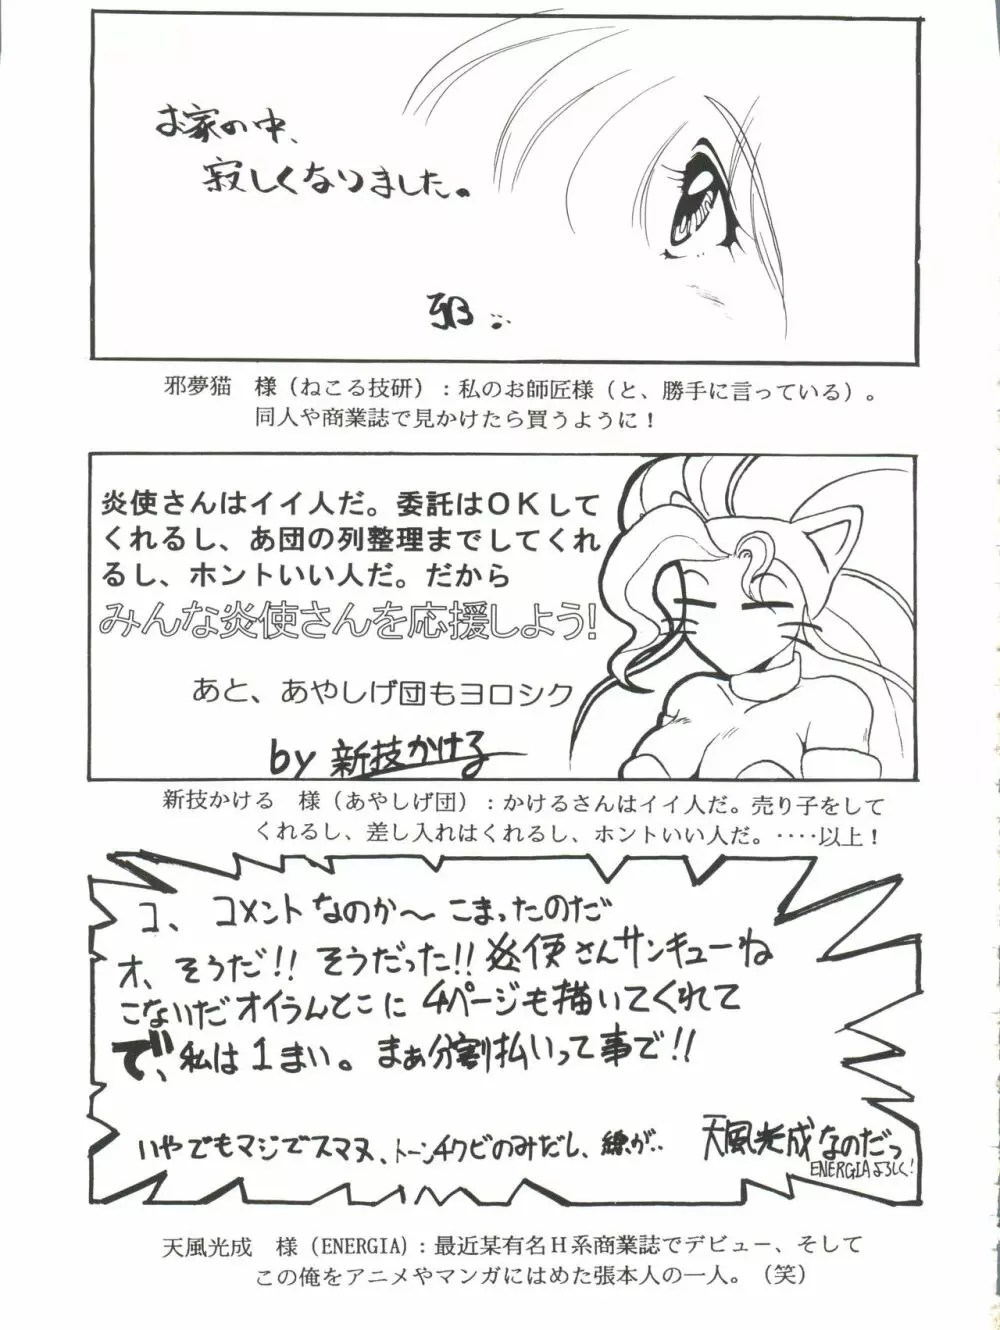 お家の中、
寂しくなりました。
邪夢猫　様（ねこる技研）：私のお師匠様（と、勝手に言っている）。
同人や商業誌で見かけたら買うように！
炎使さんはイイ人だ。委託はＯＫして
くれるし、あ団の列整理までしてくれ
るし、ホントいい人だ。だから
みんな炎使さんを応援しよう!
あと、あやしげ団もヨロシク
by 新技かける
新技かける　様（あやしげ団）：かけるさんはイイ人だ。売り子をして
くれるし、差し入れはくれるし、ホントいい人だ。‥‥以上！
コ、コメントなのか〜こまったのだ
オ、そうだ!! そうだった!! 炎使さんサンキューね
こないだオイらんとこに4ページも描いてくれて
で、私は1まい。まぁ分割払いって事で!!
いやでもマジでスマヌ、トーンチクビのみだし、線が..
天風光成なのだっ
ENERGIAよろしく!
天風光成　様（ENERGIA）：最近某有名Ｈ系商業誌でデビュー、そして
この俺をアニメやマンガにはめた張本人の一人。（笑）